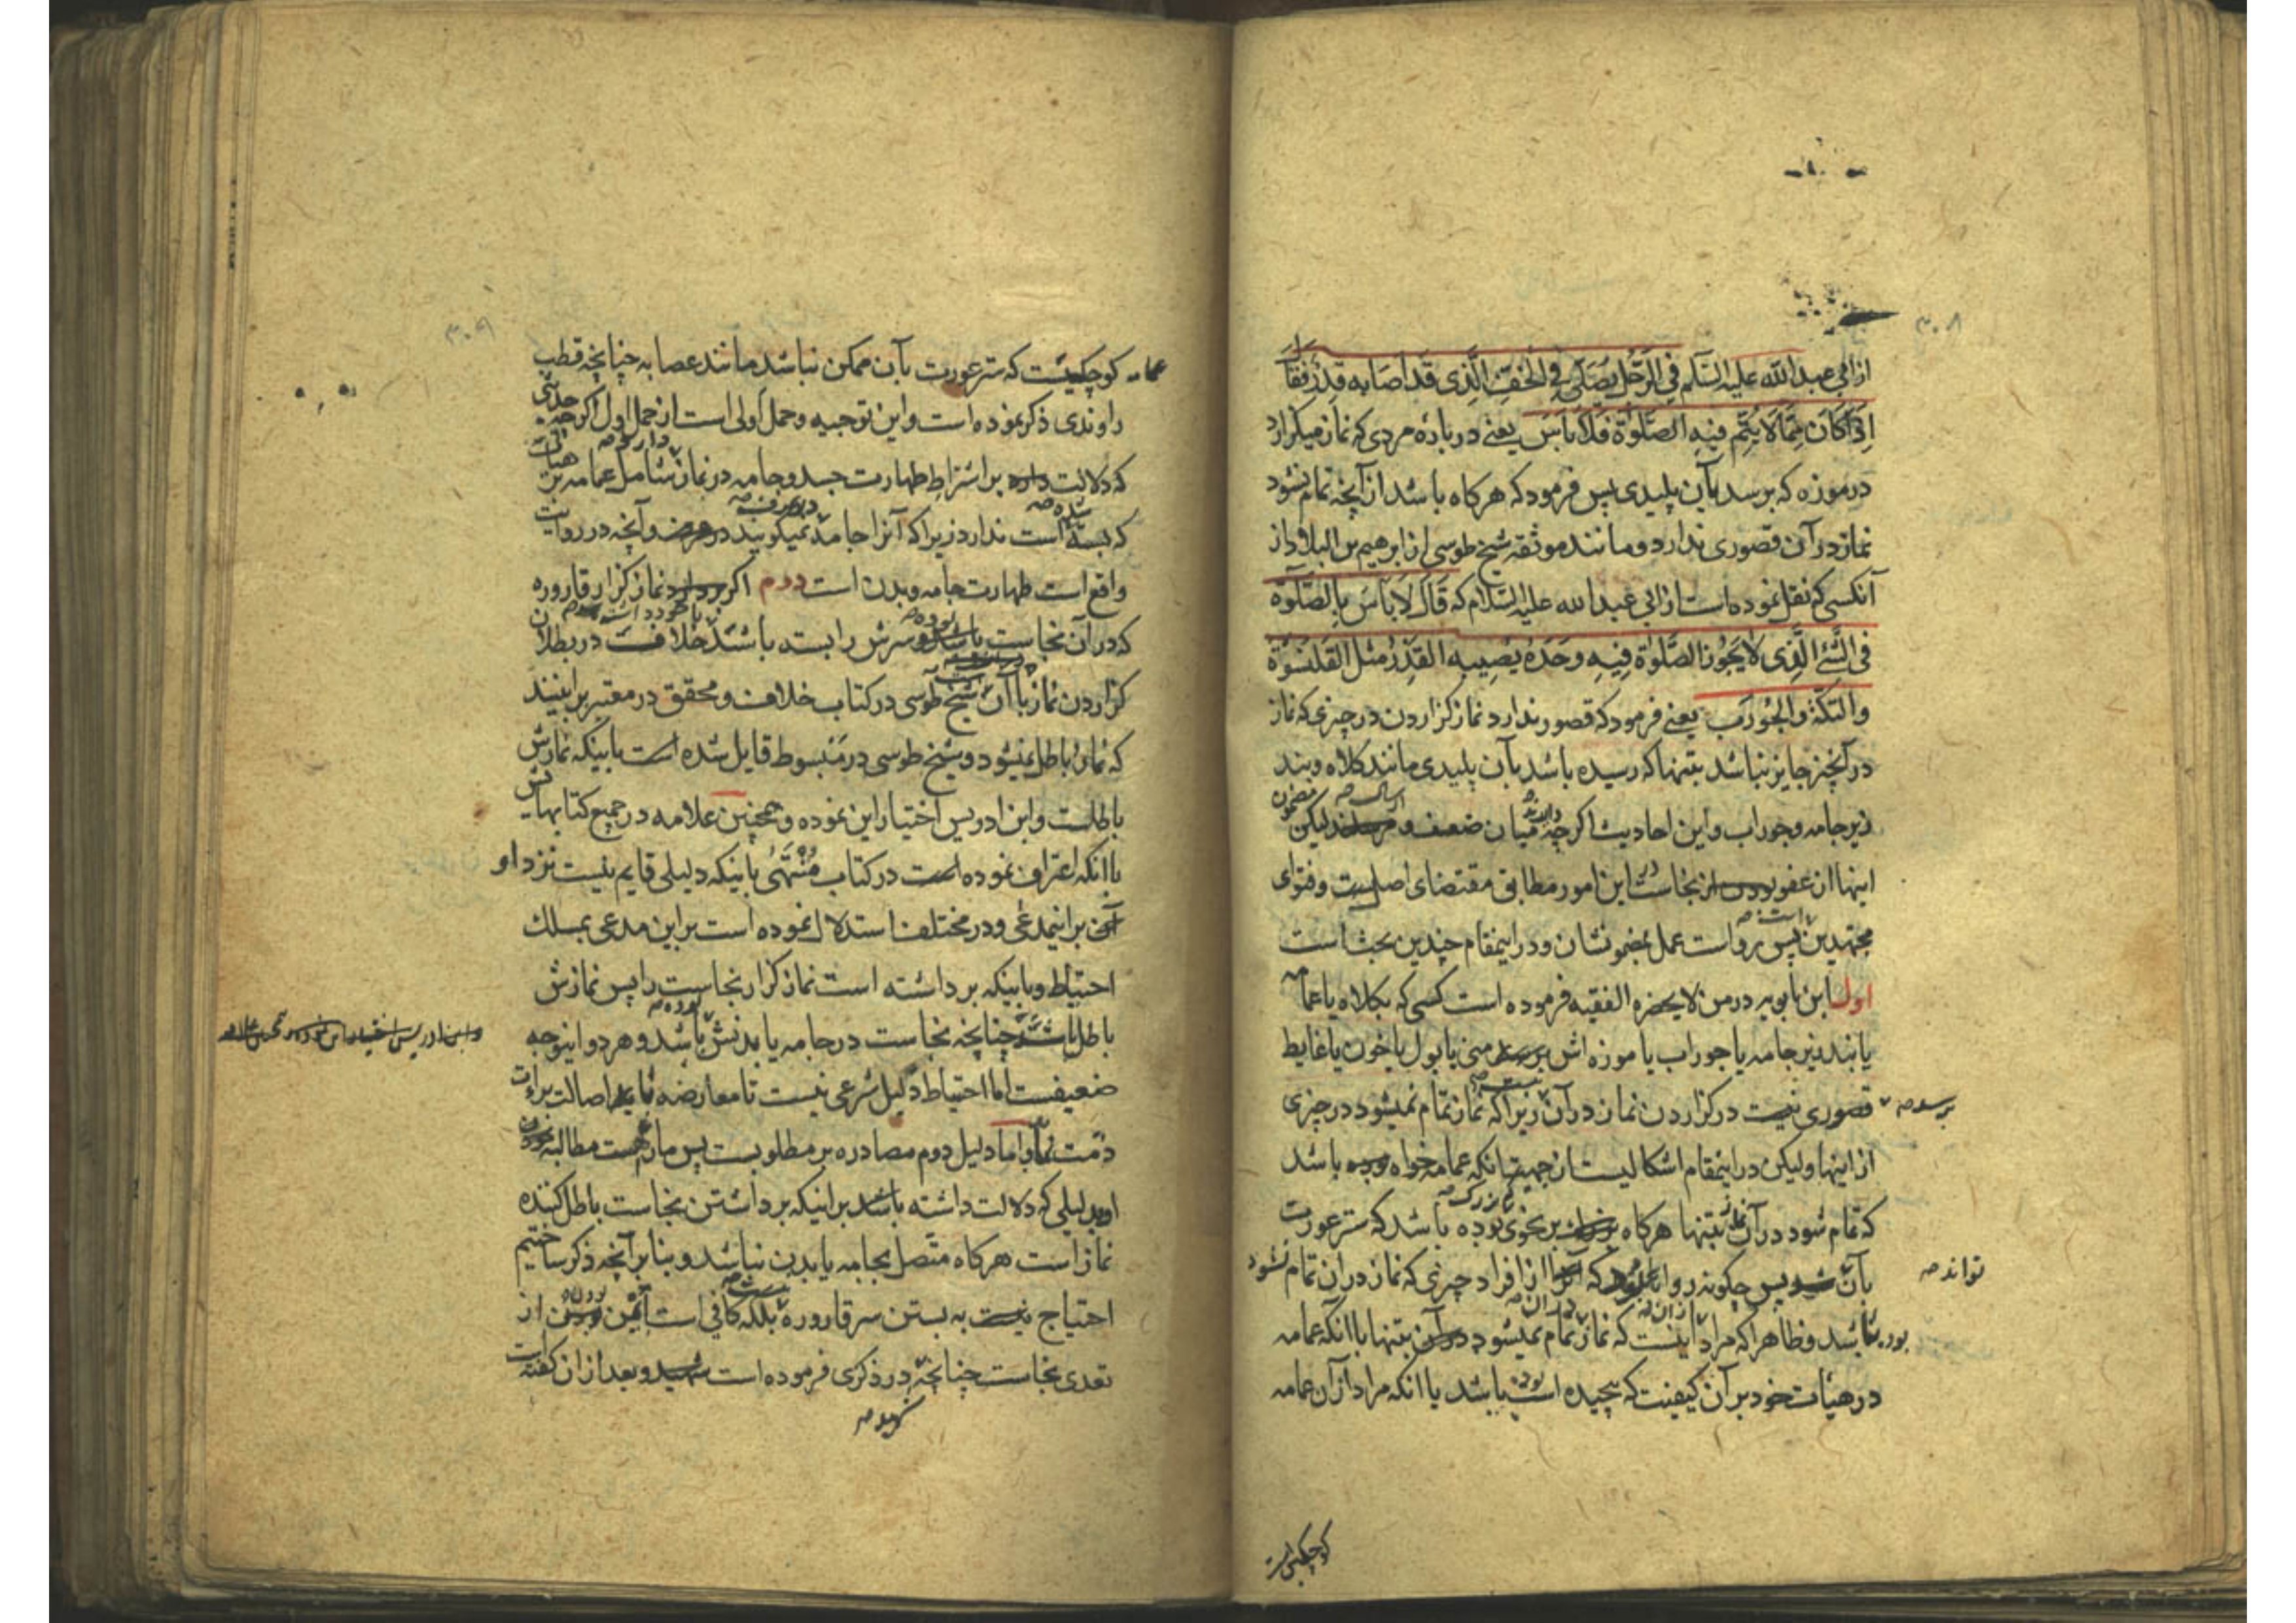 ۳۰۸
از ابی عبد الله علیه السّلم فی الرّجل یصلّی فی الخفّ الّذی قد اصابه قذر فقال
اذا کان ممّا لا یتمّ فیه الصّلوة فلا باس یعنی در باره مردی که نماز میکزارد
در موزه که برسد بآن پلیدی پس فرمود که هرکاه باشد از آنچه تمام نشود
نماز در آن قصوری ندارد و مانند موثقه شیخ طوسی از ابرهیم بن البلاد از
آنکسی که نقل نموده است از ابی عبد الله علیه السّلام که قال لا باس بالصّلوة
فی الشّئ الّذی لا یجوز الصّلوة فیه وحده یصیبه القذر مثل القلنسوة
والتکّة والجورب یعنی فرمود که قصور ندارد نماز کزاردن در چیزی که نماز
در آنچیز جایز نباشد بتنها که رسیده باشد بآن پلیدی مانند کلاه و بند
زیر جامه و جوراب و این احادیث اکر چه میان ضعف و لیکن
اینها از عفو نجاست این امور مطابق مقتضای اصلست و فتوای
مجتهدین پس رواست عمل بمضمونشان و در اینمقام چندین بحث است
اول ابن بابویه در من لا یحضره الفقیه فرموده است کسی که بکلاه یا عمامه
یا بند زیر جامه یا جوراب یا موزه اش برسد منی یا بول یا خون یا غایط
برسد صه
قصوری نیست در کزاردن نماز در آن زیرا که نماز تمام نمیشود در چیزی
از اینها و لیکن در اینمقام اشکالیست از جهة آنکه عمامه خواه باشد
که تمام شود در آن نماز بتنها هرکاه بر نحوی بوده باشد که ستر عورت
بآن پس چکونه روا که از افراد چیزی که نماز در آن تمام نشود
تواند صه
بوده باشد و ظاهرا که مراد اینست که نماز تمام نمیشود در آن بتنها با آنکه عمامه
در هیات خود بر آن کیفیت که پیچیده است باشد یا آنکه مراد از آن عمامه
کوچکیست
۳۰۹
عمامه کوچکیست که ستر عورت بآن ممکن نباشد مانند عصابه چنانچه قطب
راوندی ذکر نموده است و این توجیه و حمل اولی است از حمل اول اکر چه حدیثی
که دلالت دارد بر اشتراط طهارت جسد و جامه در نماز شامل عمامه بر هیاتی
که بسته است ندارد زیرا که آنرا جامه نمیکویند در عرف و آنچه در روایت
واقع است طهارت جامه و بدن است دوم اکر نماز کزار قاروره
که در آن نجاست باشد و سرش را بسته باشد خلافست در بطلان
کزاردن نماز با آن شیخ طوسی در کتاب خلاف و محقق در معتبر بر اینند
که نماز باطل نمیشود و شیخ طوسی در مبسوط قایل شده است باینکه نمازش
باطلست و ابن ادریس اختیار این نموده و همچنین علامه در جمیع کتابهایش
با آنکه اعتراف نموده است در کتاب منتهی باینکه دلیلی قایم نیست نزد او
بر اینمدعی و در مختلف استدلال نموده است بر این مدعی بمسلک
احتیاط و باینکه برداشته است نماز کزار نجاست را پس نمازش
باطل باشد چنانچه نجاست در جامه یا بدنش باشد و هر دو اینوجه
ضعیفست اما احتیاط دلیل شرعی نیست تا معارضه نماید اصالت براءت
ذمّت را و اما دلیل دوم مصادره بر مطلوبست پس ما را هست مطالبه نمودن
او بدلیلی که دلالت داشته باشد بر اینکه برداشتن نجاست باطل کننده
نماز است هرکاه متّصل بجامه یا بدن نباشد و بنا بر آنچه ذکر ساختیم
احتیاج نیست به بستن سر قاروره بلکه کافی است ایمن بودن از
تعدی نجاست چنانچه در ذکری فرموده است شهید و بعد از ان کفته است